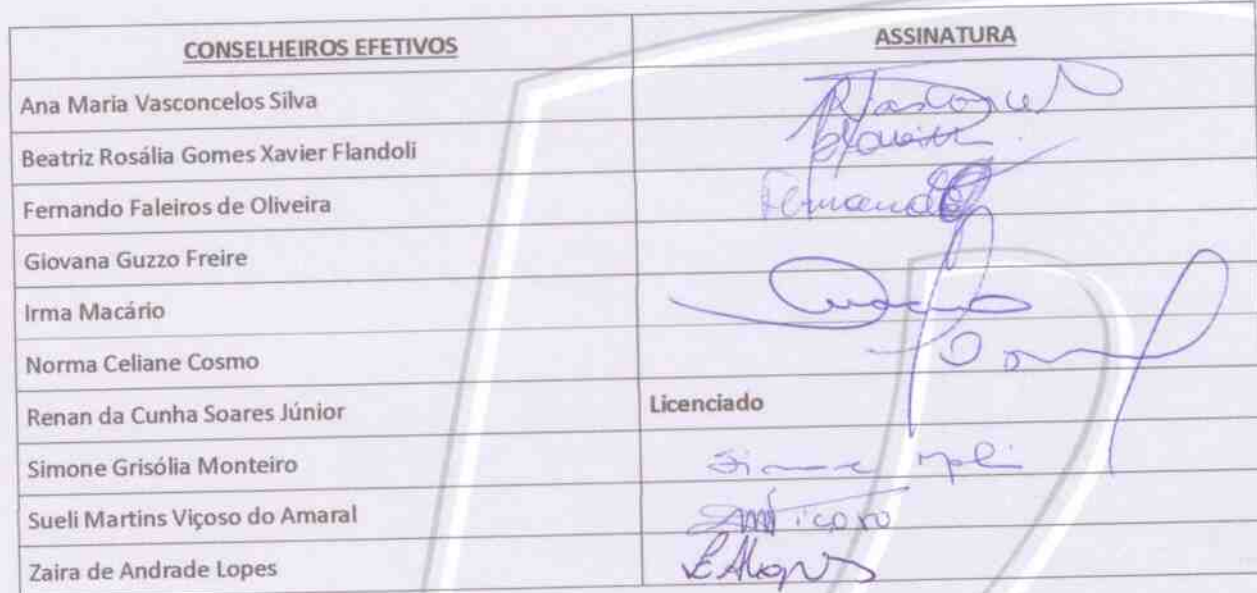 CONSELHEIROS EFETIVOS ASSINATURA
Ana Maria Vasconcelos Silva
Beatriz Rosália Gomes Xavier Flandoli
Fernando Faleiros de Oliveira Fernando
Giovana Guzzo Freire
Irma Macário
Norma Celiane Cosmo
Renan da Cunha Soares Júnior Licenciado
Simone Grisólia Monteiro Simone
Sueli Martins Viçoso do Amaral
Zaira de Andrade Lopes